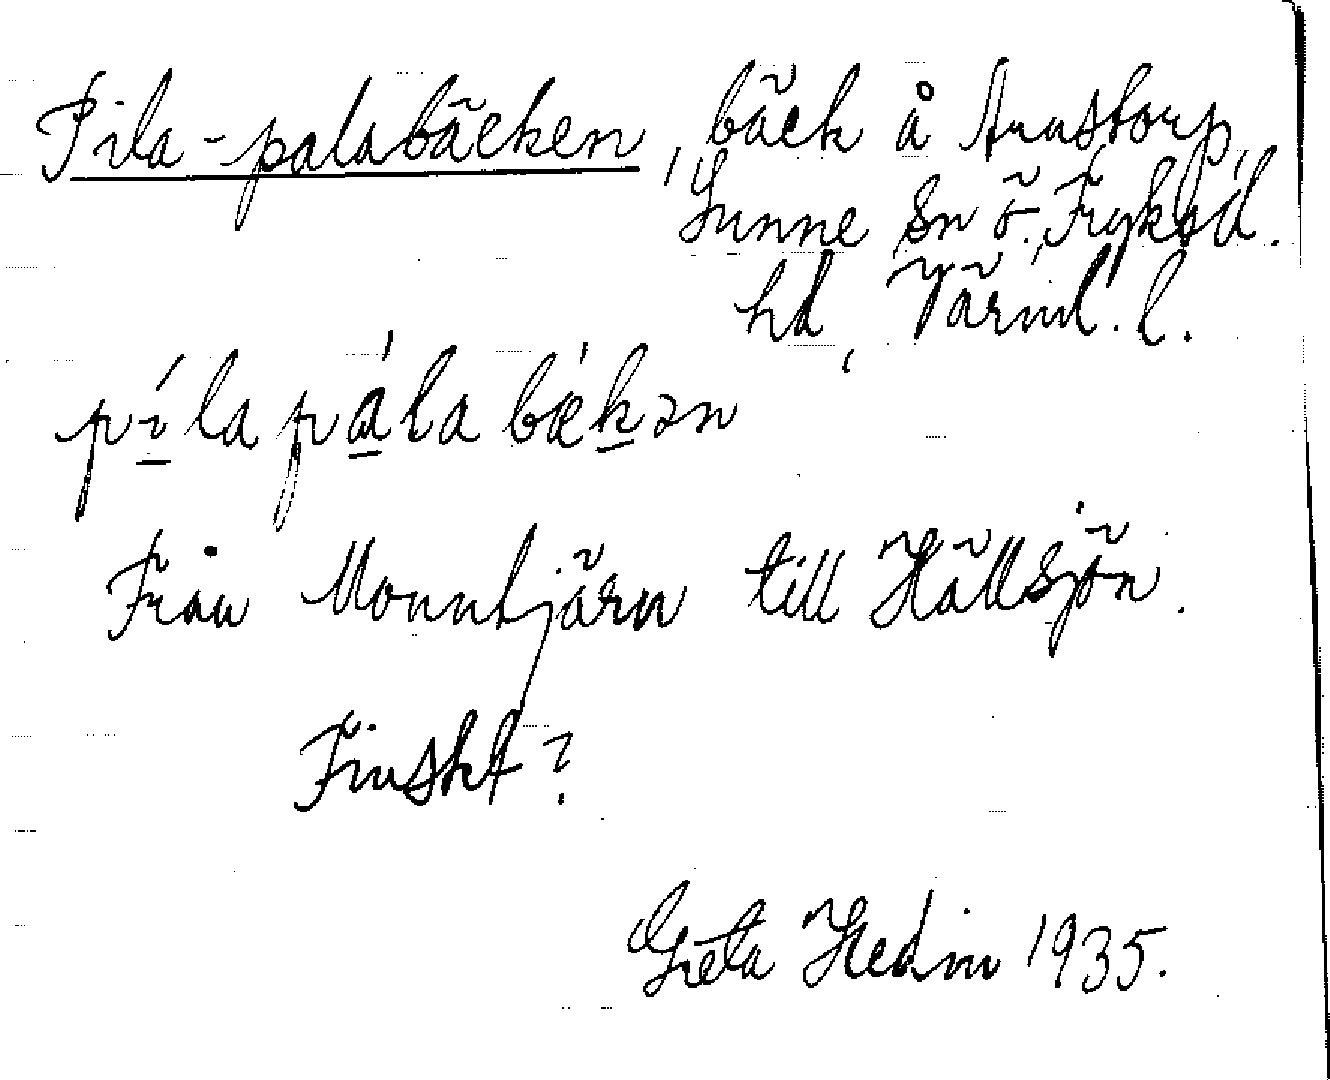 Pila-palabäcken, bäck å Arnstorp,
Sunne sn ö. Fryksd.
hd, Värml. l.
píla pála bækən
Från Monntjärn till Hällsjön.
Finskt?
Greta Hedin 1935.